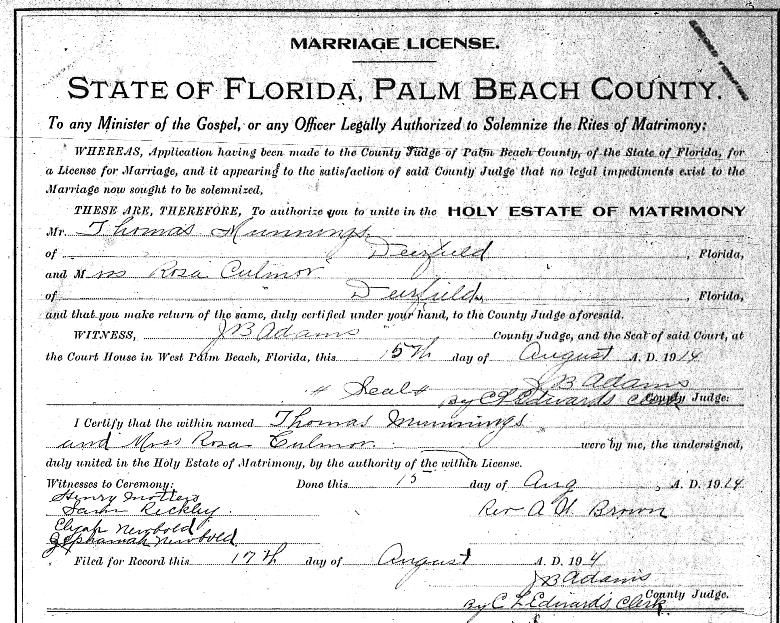 MARRIAGE LICENSE.
STATE OF FLORIDA, PALM BEACH COUNTY.
To any Minister of the Gospel, or any Officer Legally Authorized to Solemnize the Rites of Matrimony:
WHEREAS, Application having been made to the County Judge of Palm Beach County, of the State of Florida, for
a License for Marriage, and it appearing to the satisfaction of said County Judge that no legal impediments exist to the
Marriage now sought to be solemnized,
THESE ARE, THEREFORE, To authorize you to unite in the HOLY ESTATE OF MATRIMONY
Mr. Thomas Munnings
of Deerfield, Florida,
and Miss Rosa Culmor
of Deerfield, Florida,
and that you make return of the same, duly certified under your hand, to the County Judge aforesaid.
WITNESS, J B Adams County Judge, and the Seal of said Court, at
the Court House in West Palm Beach, Florida, this 15th day of August A. D. 1914
J B Adams
"Seal" By C L Edwards Clerk County Judge:
I Certify that the within named Thomas Munnings
and Moss Rosa Culmor were by me, the undersigned,
duly united in the Holy Estate of Matrimony, by the authority of the within License.
Witnesses to Ceremony: Done this 15 day of Aug, A. D. 1914
Henry
Rev A W Brown
Rickley
Elijah Newbold
Zephaniah Newbold
Filed for Record this 17th day of August A. D. 1914
J B Adams
County Judge.
By C L Edwards Clerk